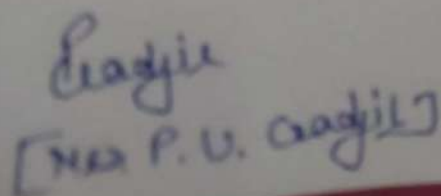 Gadgil
[Mrs P. U. Gadgil]